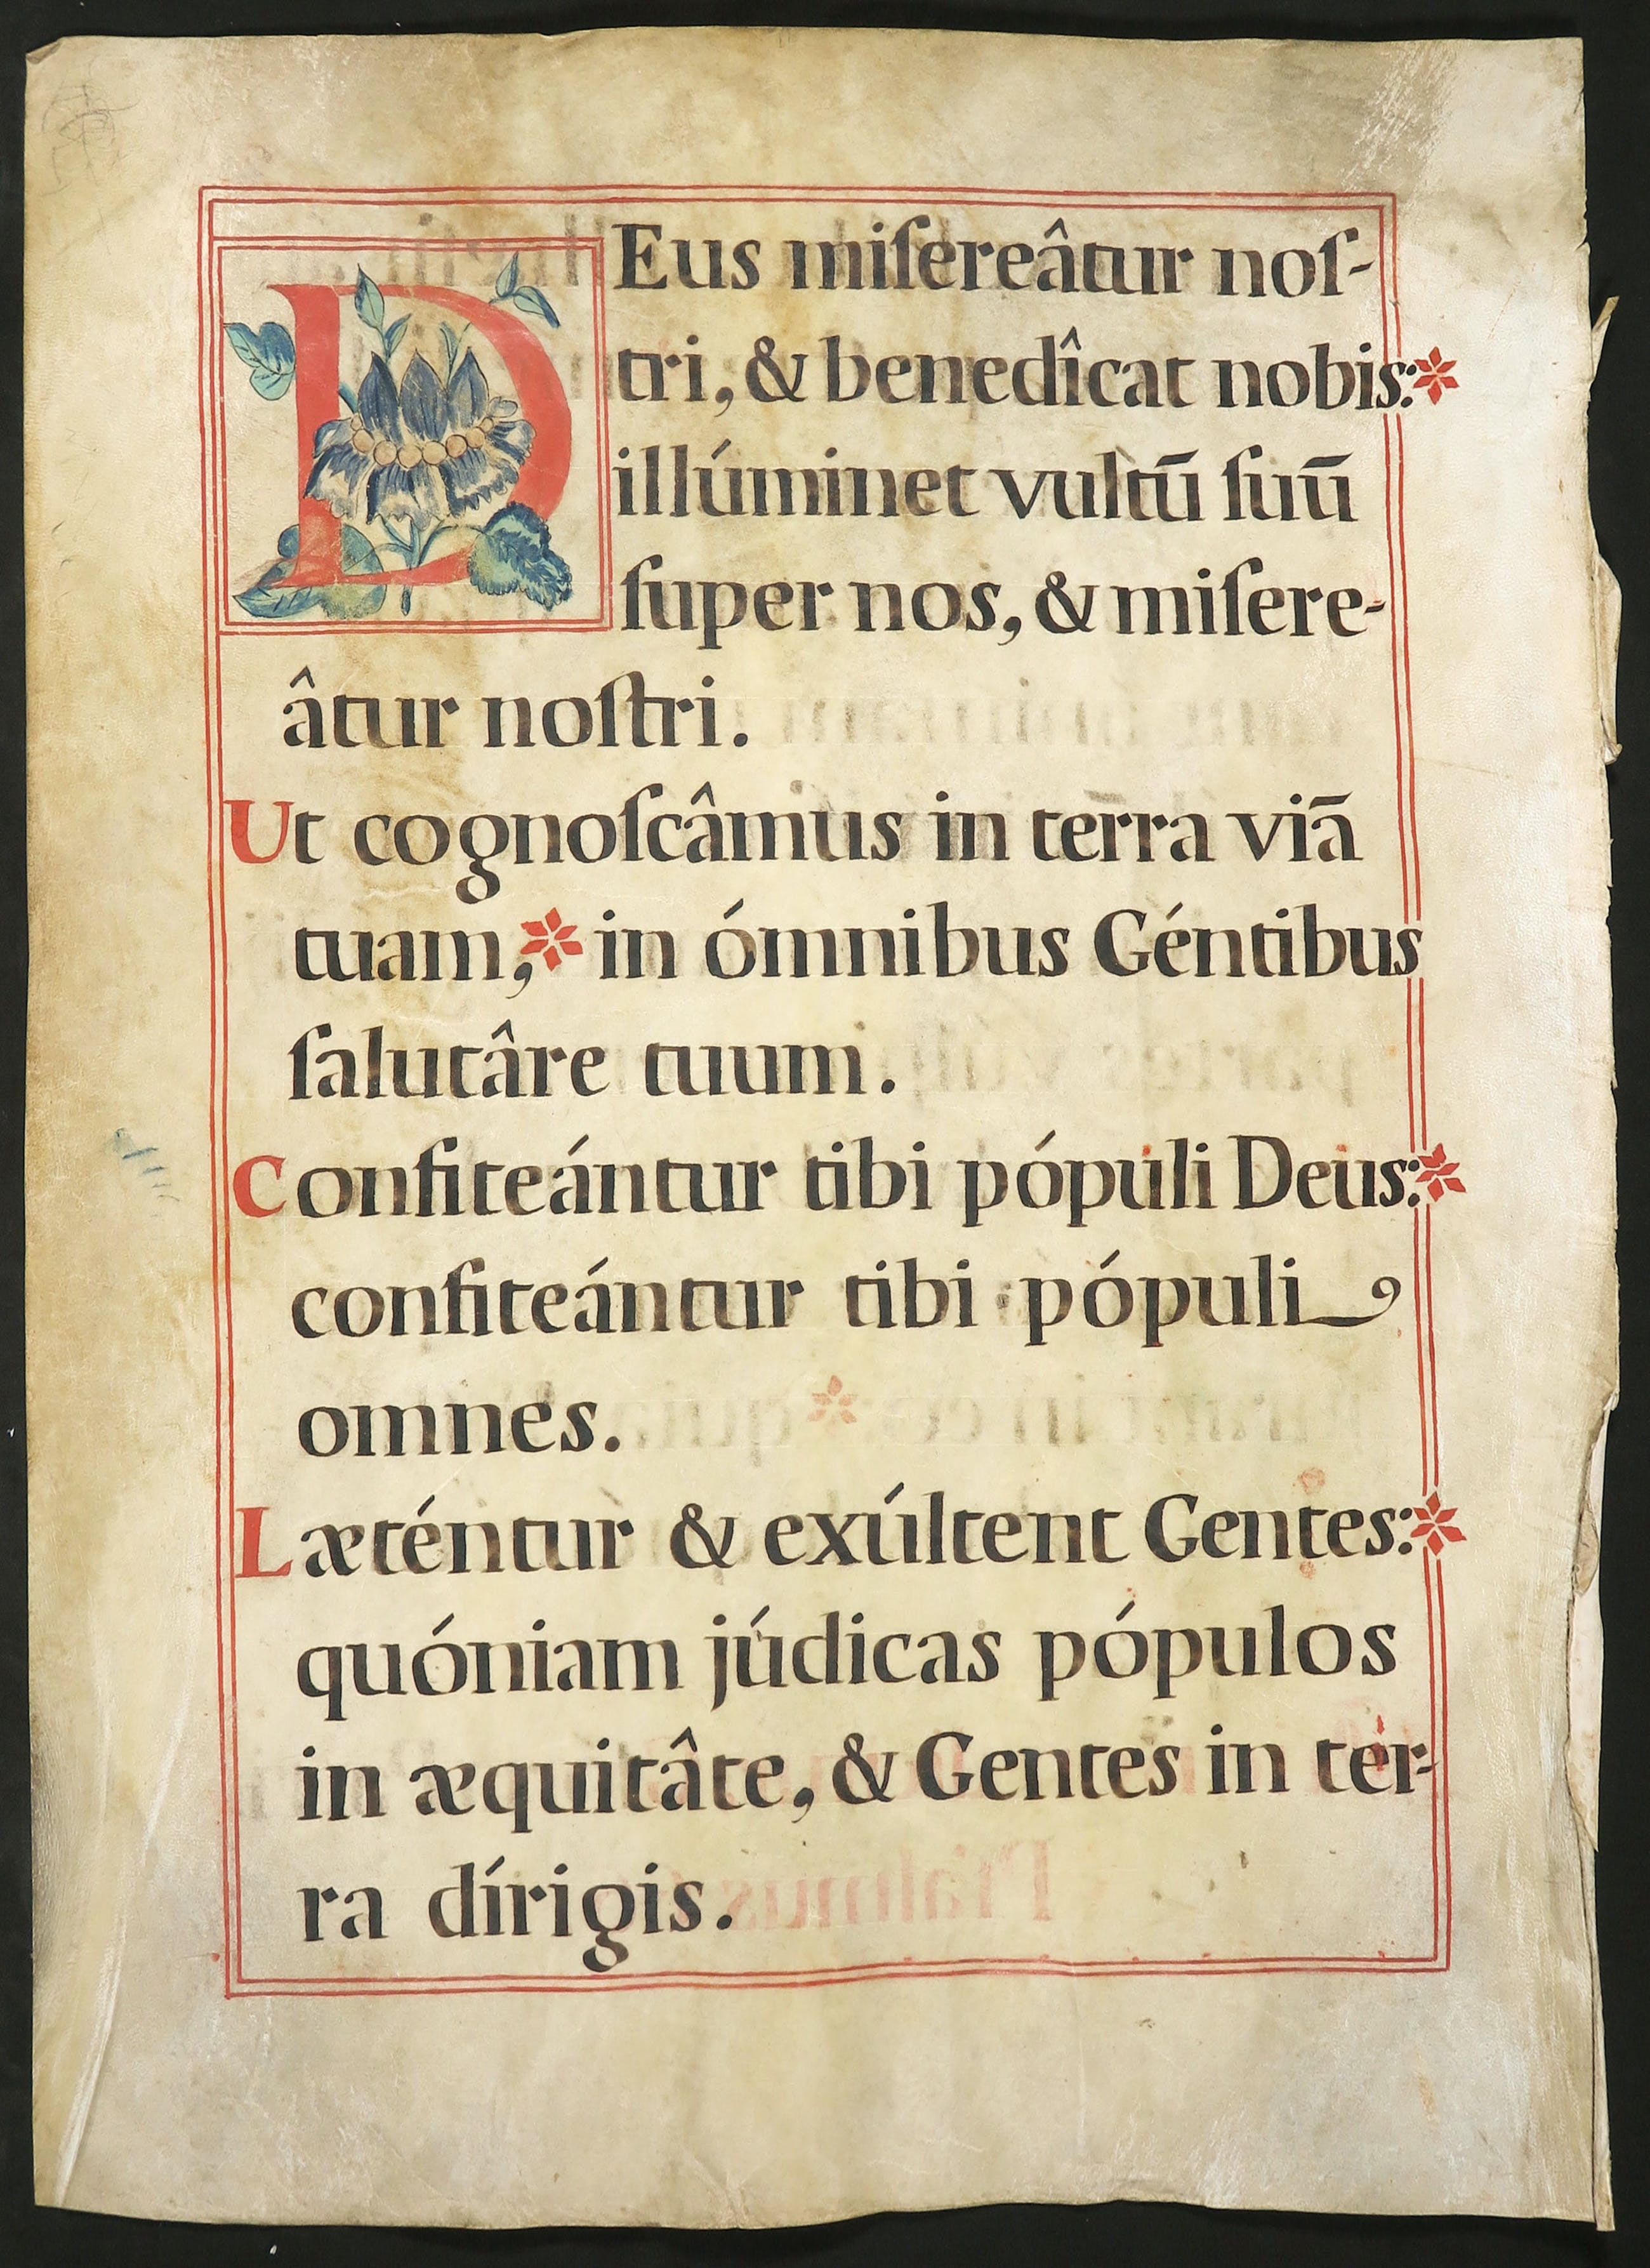 DEus miſereâtur noſ-
tri, & benedîcat nobis:*
illúminet vultū ſuū
ſuper nos, & miſere-
âtur noſtri.
Ut cognoſcâmus in terra viā
tuam,* in ómnibus Géntibus
ſalutâre tuum.
Confiteántur tibi pópuli Deus:*
confiteántur tibi pópuli
omnes.
Læténtur & exúltent Gentes:*
quóniam júdicas pópulos
in æquitâte, & Gentes in ter-
ra dírigis.